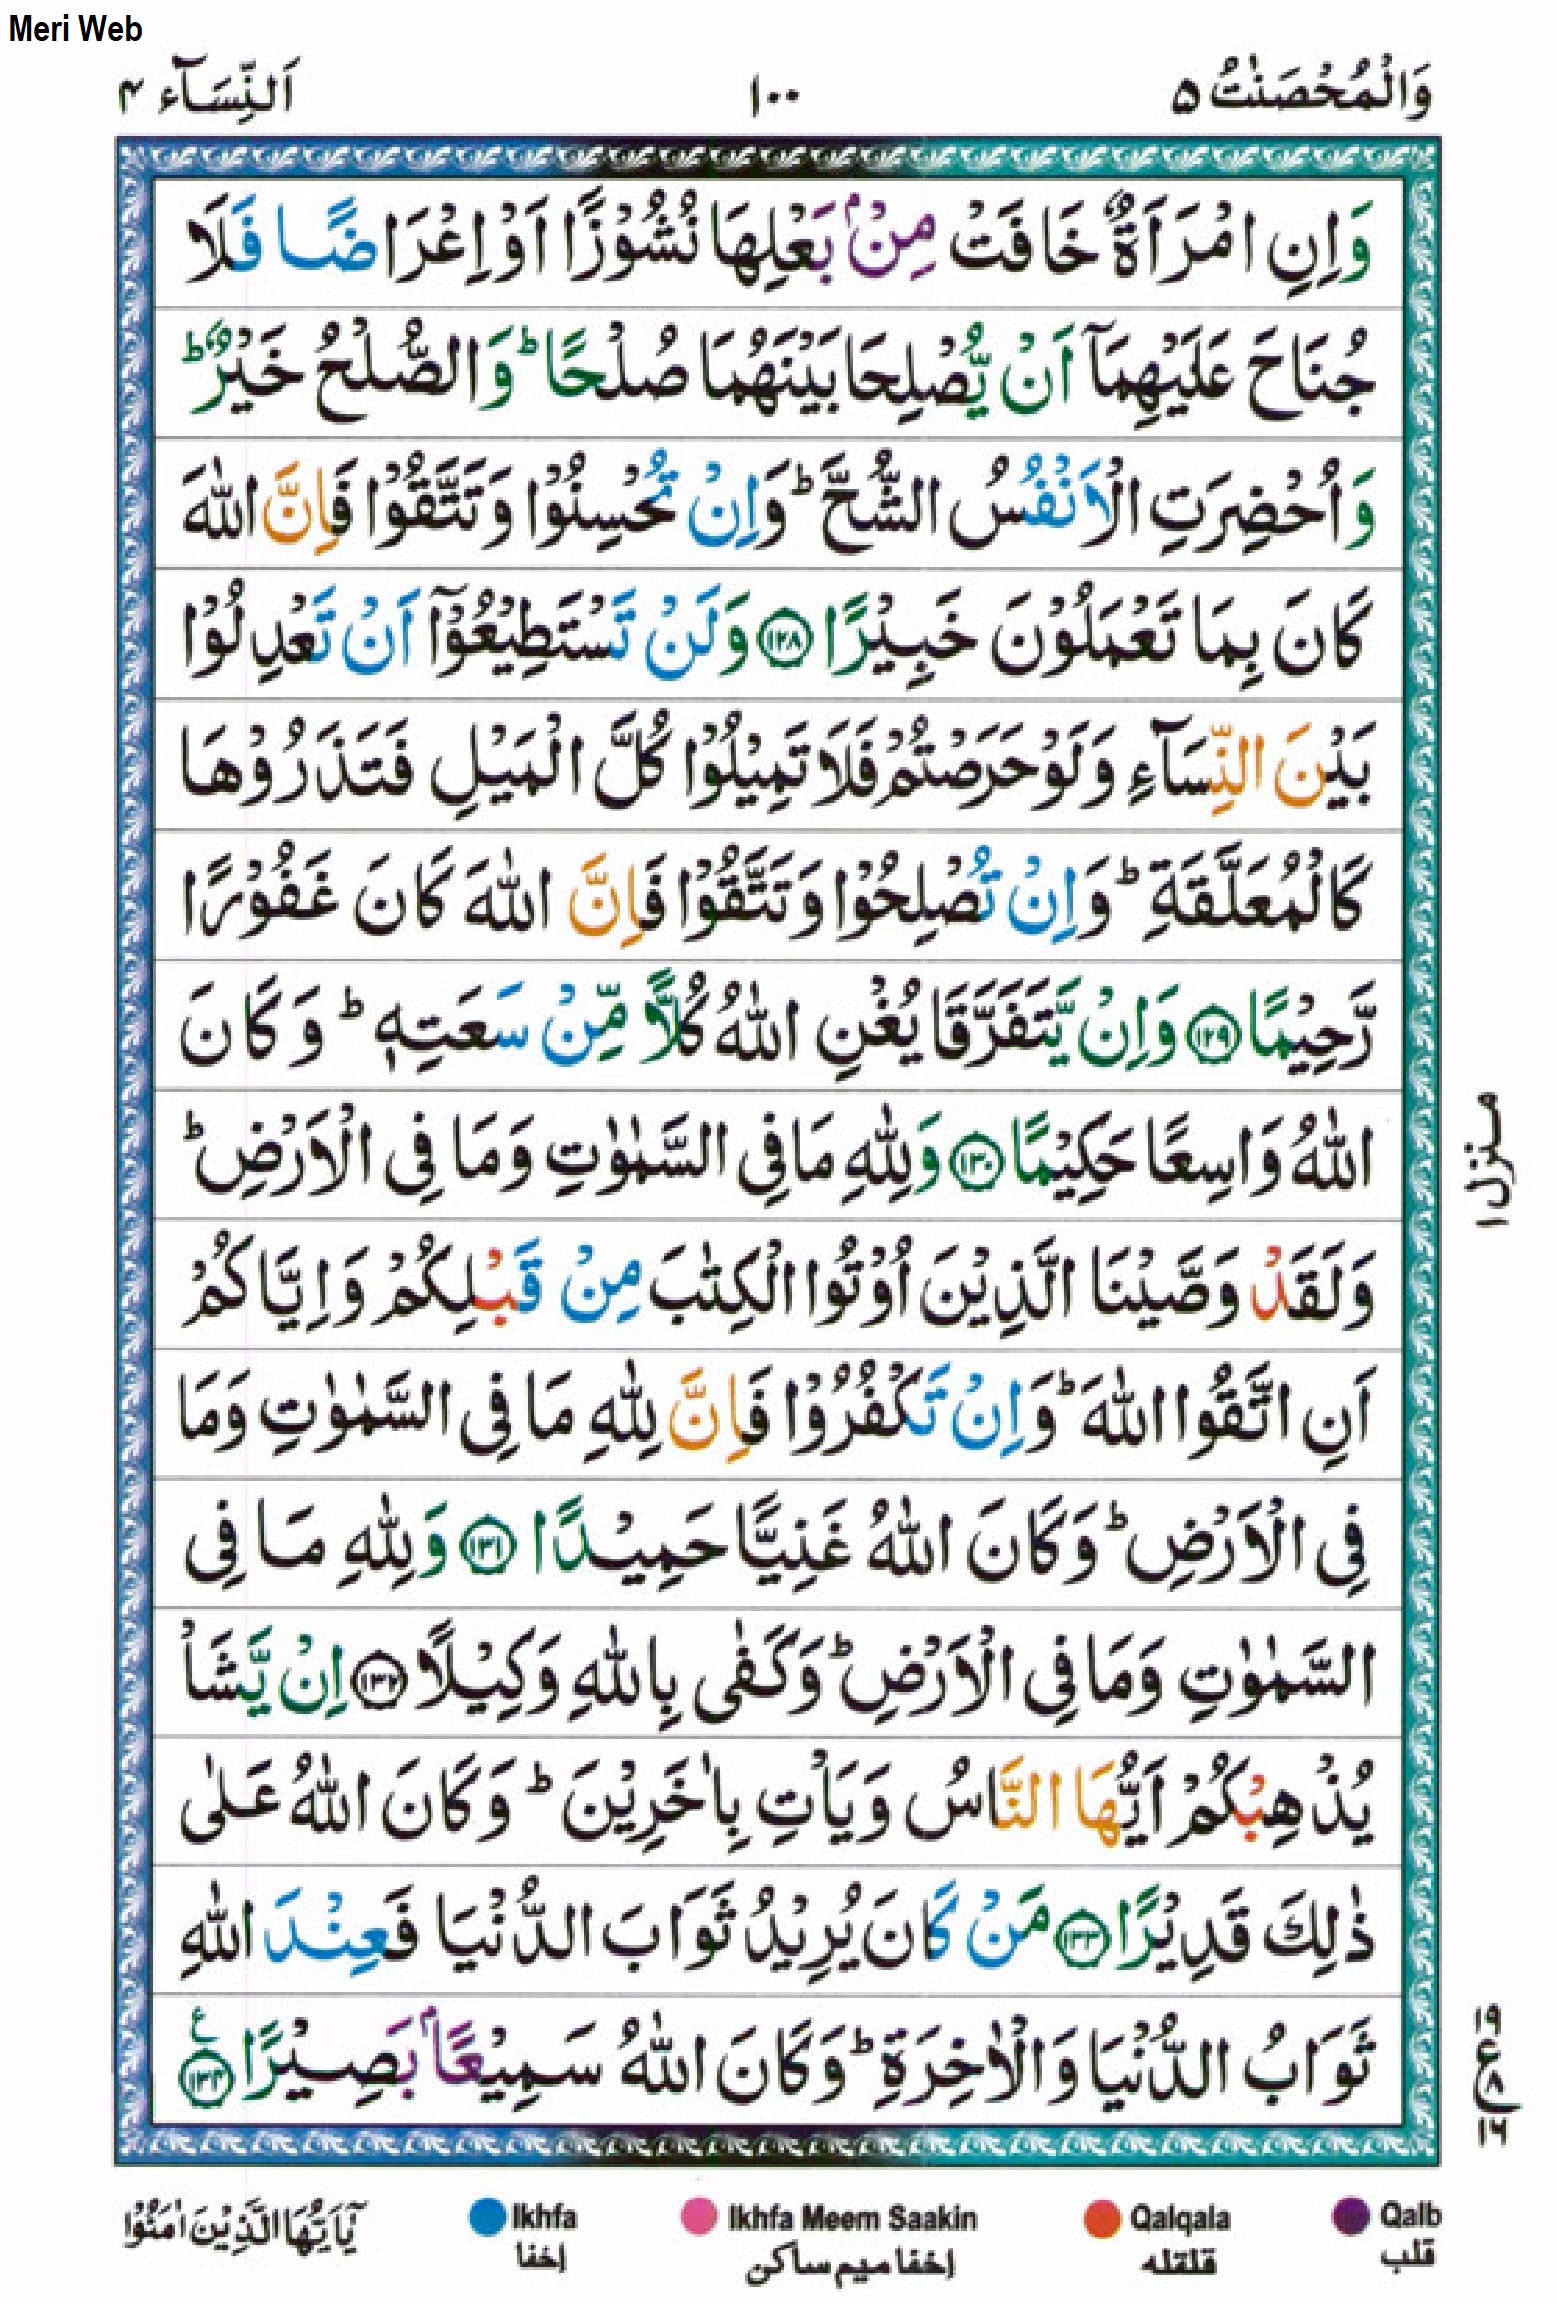 Meri Web
وَالْمُحْصَنٰتُ ۵ ۱۰۰ اَلنِّسَآء ۴
وَاِنِ امْرَاَةٌ خَافَتْ مِنْۢ بَعْلِهَا نُشُوْزًا اَوْ اِعْرَاضًا فَلَا
جُنَاحَ عَلَيْهِمَآ اَنْ يُّصْلِحَا بَيْنَهُمَا صُلْحًا ؕ وَالصُّلْحُ خَيْرٌ ؕ
وَاُحْضِرَتِ الْاَنْفُسُ الشُّحَّ ؕ وَاِنْ تُحْسِنُوْا وَتَتَّقُوْا فَاِنَّ اللّٰهَ
كَانَ بِمَا تَعْمَلُوْنَ خَبِيْرًا ۱۲۸ وَلَنْ تَسْتَطِيْعُوْٓا اَنْ تَعْدِلُوْا
بَيْنَ النِّسَآءِ وَلَوْ حَرَصْتُمْ فَلَا تَمِيْلُوْا كُلَّ الْمَيْلِ فَتَذَرُوْهَا
كَالْمُعَلَّقَةِ ؕ وَاِنْ تُصْلِحُوْا وَتَتَّقُوْا فَاِنَّ اللّٰهَ كَانَ غَفُوْرًا
رَّحِيْمًا ۱۲۹ وَاِنْ يَّتَفَرَّقَا يُغْنِ اللّٰهُ كُلًّا مِّنْ سَعَتِهٖ ؕ وَكَانَ
اللّٰهُ وَاسِعًا حَكِيْمًا ۱۳۰ وَلِلّٰهِ مَا فِى السَّمٰوٰتِ وَمَا فِى الْاَرْضِ ؕ
وَلَقَدْ وَصَّيْنَا الَّذِيْنَ اُوْتُوا الْكِتٰبَ مِنْ قَبْلِكُمْ وَاِيَّاكُمْ
اَنِ اتَّقُوا اللّٰهَ ؕ وَاِنْ تَكْفُرُوْا فَاِنَّ لِلّٰهِ مَا فِى السَّمٰوٰتِ وَمَا
فِى الْاَرْضِ ؕ وَكَانَ اللّٰهُ غَنِيًّا حَمِيْدًا ۱۳۱ وَلِلّٰهِ مَا فِى
السَّمٰوٰتِ وَمَا فِى الْاَرْضِ ؕ وَكَفٰى بِاللّٰهِ وَكِيْلًا ۱۳۲ اِنْ يَّشَاْ
يُذْهِبْكُمْ اَيُّهَا النَّاسُ وَيَاْتِ بِاٰخَرِيْنَ ؕ وَكَانَ اللّٰهُ عَلٰى
ذٰلِكَ قَدِيْرًا ۱۳۳ مَنْ كَانَ يُرِيْدُ ثَوَابَ الدُّنْيَا فَعِنْدَ اللّٰهِ
ثَوَابُ الدُّنْيَا وَالْاٰخِرَةِ ؕ وَكَانَ اللّٰهُ سَمِيْعًاۢ بَصِيْرًا ۱۳۴ ع
منزل ۱
۱۹
ع ۸
۱۶
Qalb Qalqala Ikhfa Meem Saakin Ikhfa
قلب قلقله اخفا ميم ساكن اخفا
يٰٓاَيُّهَا الَّذِيْنَ اٰمَنُوْا